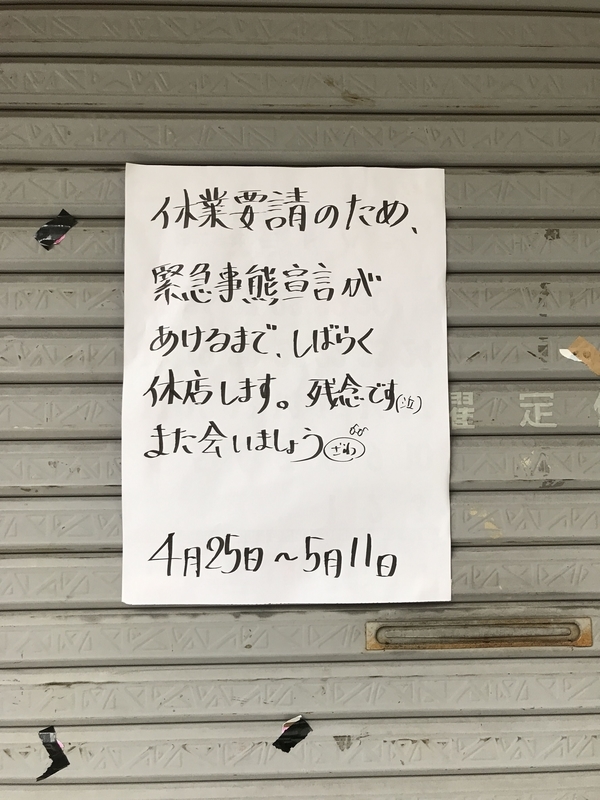 休業要請のため、
緊急事態宣言が
あけるまで、しばらく
休店します。残念です(泣)
また会いましょう ざわ
4月25日~5月11日
曜 定 休